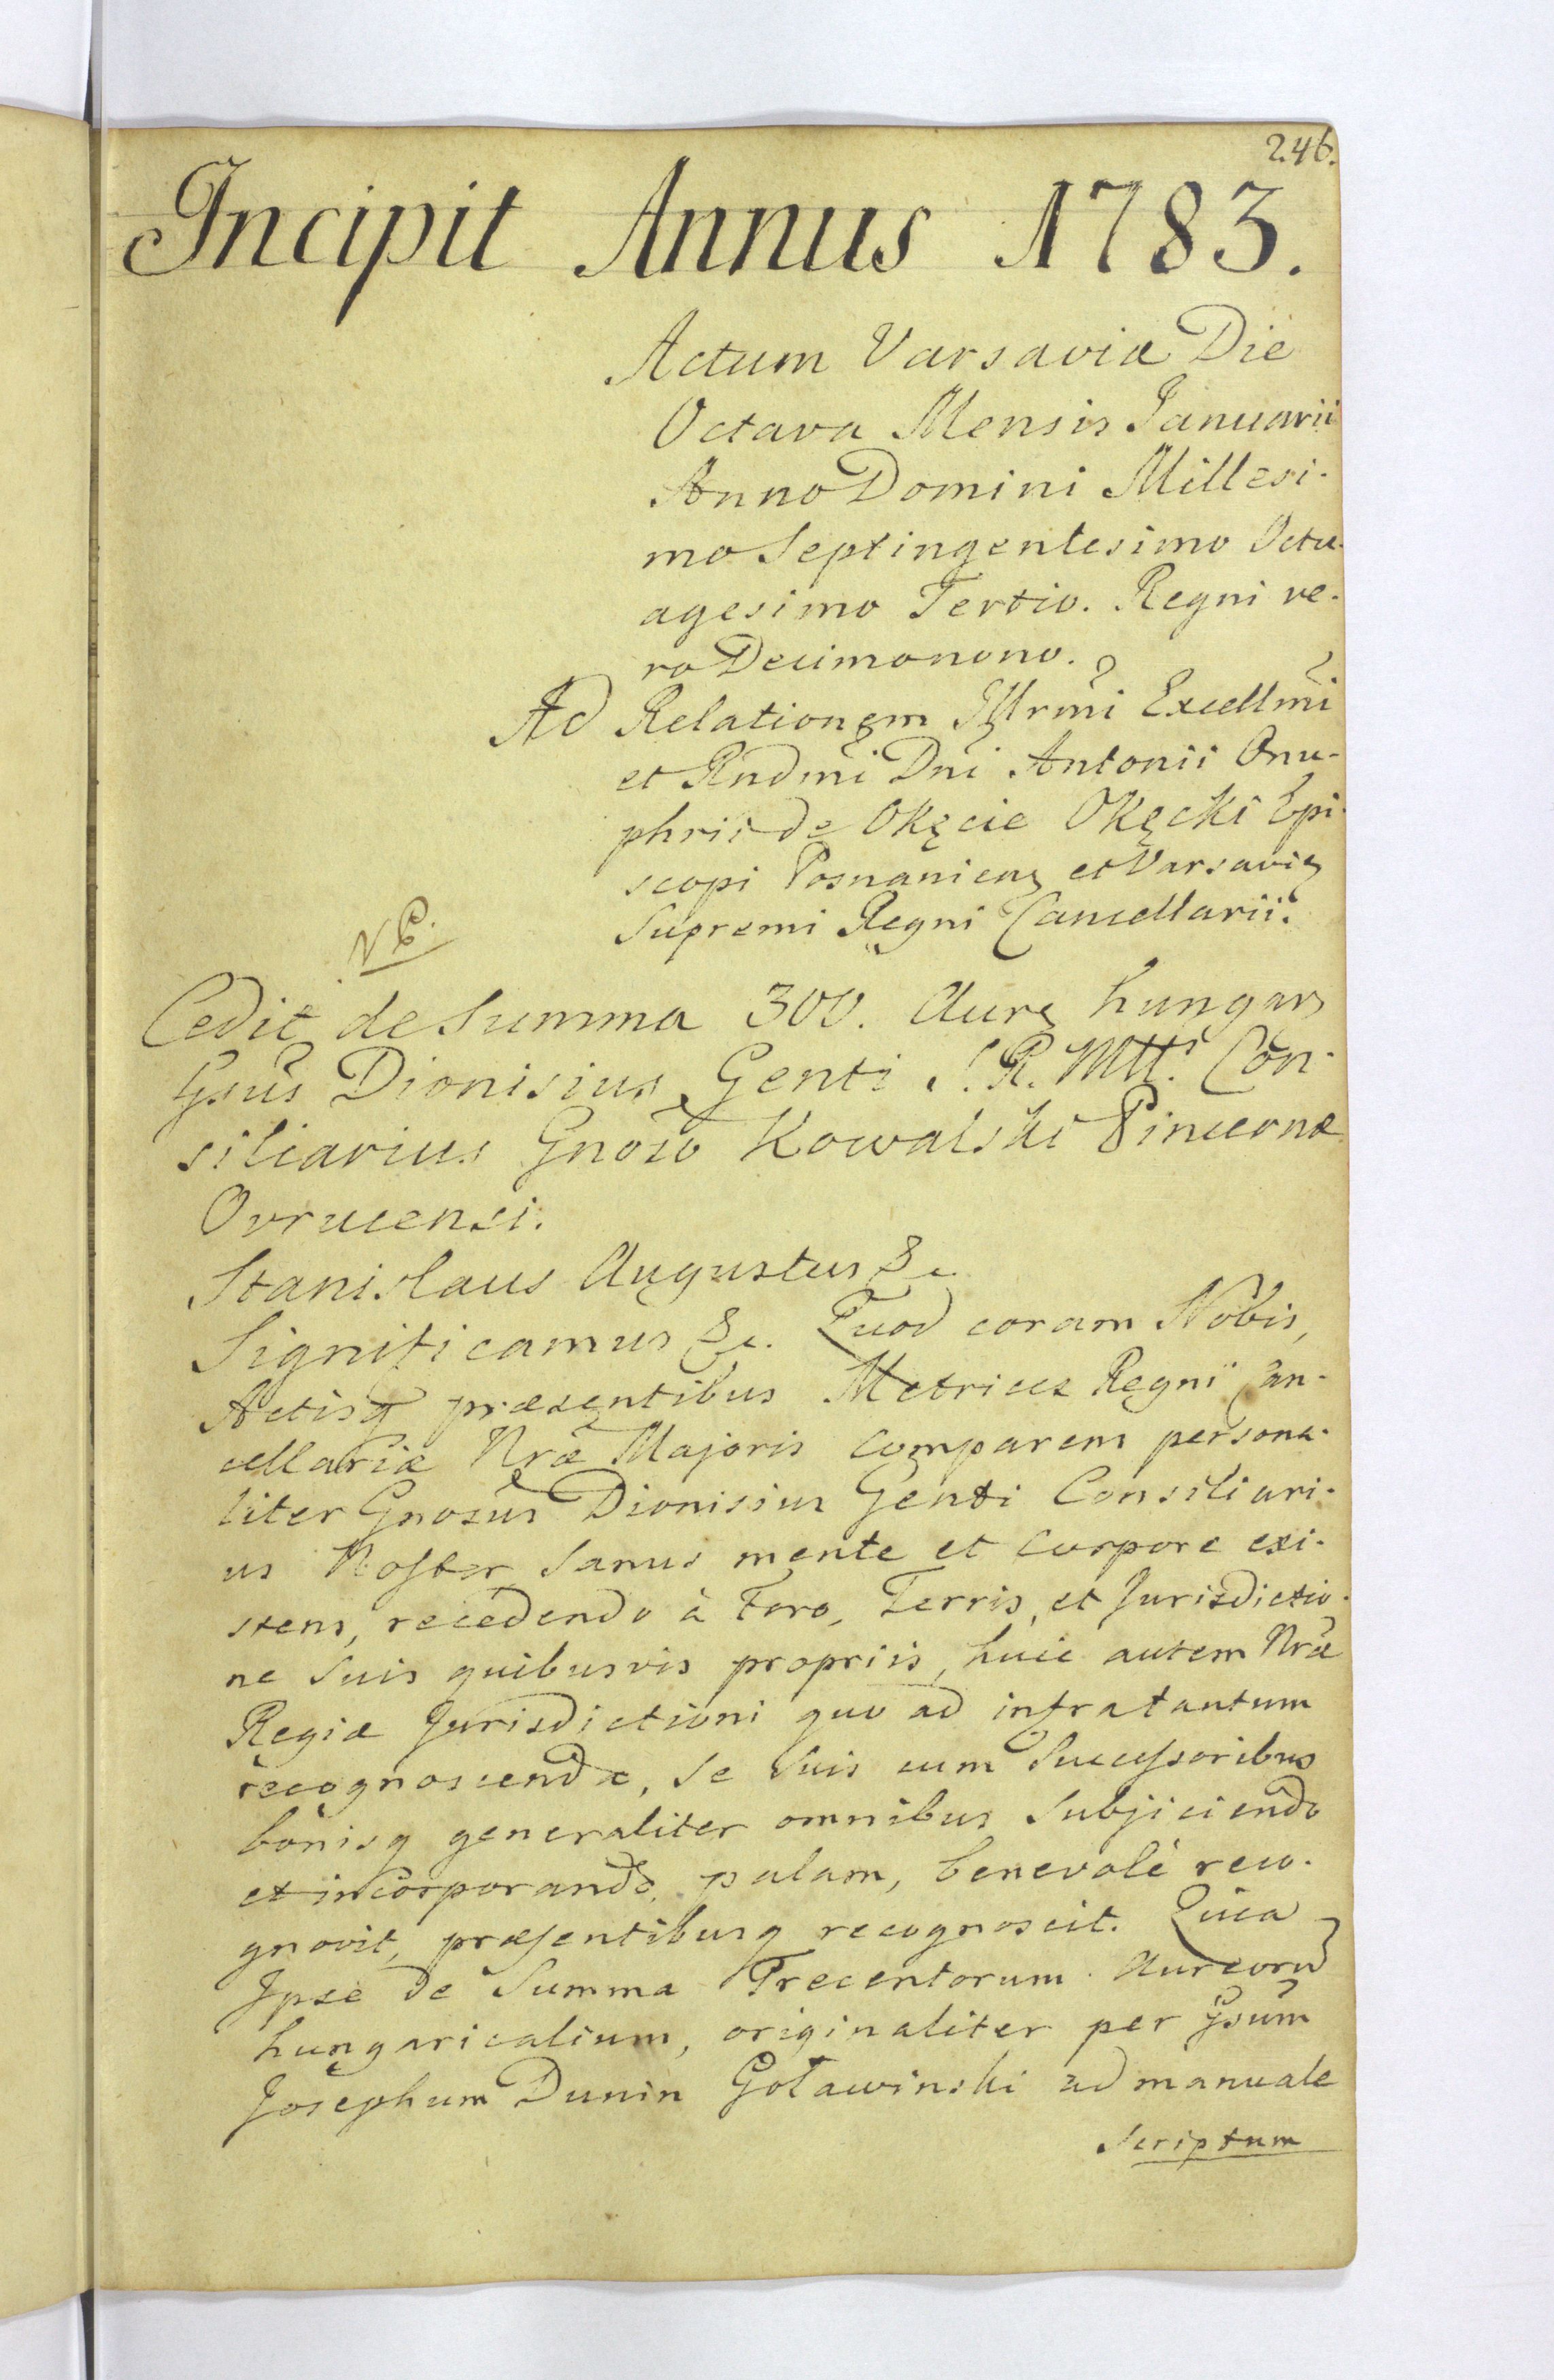 246.
Incipit Annus 1783.
Actum Varsaviæ Die
Octava Mensis Januarii
Anno Domini Millesi-
mo Septingentesimo Octu-
agesimo Tertio. Regni ve-
ro Decimonono.
Ad Relationem Illrmi Excellmi
et Rndmi Dni Antonii Onu-
phrii de Okęcie Okęcki Epi-
scopi Posnanien et Varsavię
Supremi Regni Cancellarii.
Cedit de Summa 300. Aure hungar
Gsus Dionisius Genti S. R. Mtti Con-
siliarius Gnoso Kowalski Pincernæ
Ovrucensi.
Stanislaus Augustus &c
Significamus &c. Quod coram Nobis,
Actisq præsentibus Metrices Regni Can-
cellariæ Nræ Majoris comparens persona-
liter Gnosus Dionisius Genti Consiliari-
us Noster Sanus mente et corpore exi-
stens, recedendo à Foro, Terris, et Jurisdictio-
ne Suis quibusvis propriis, huic autem Nræ
Regiæ Jurisdictioni quo ad infra tantum
recognoscenda, Se Suis cum Successoribus
bonisq generaliter omnibus Subjiciendo
et incorporando, palam, benevolè reco-
gnovit, præsentibusq recognoscit. Quia
Ipse de Summa Trecentorum Aureoru
hungaricalium, originaliter per Gsum
Josephum Dunin Goławinski ad manuale
Scriptum